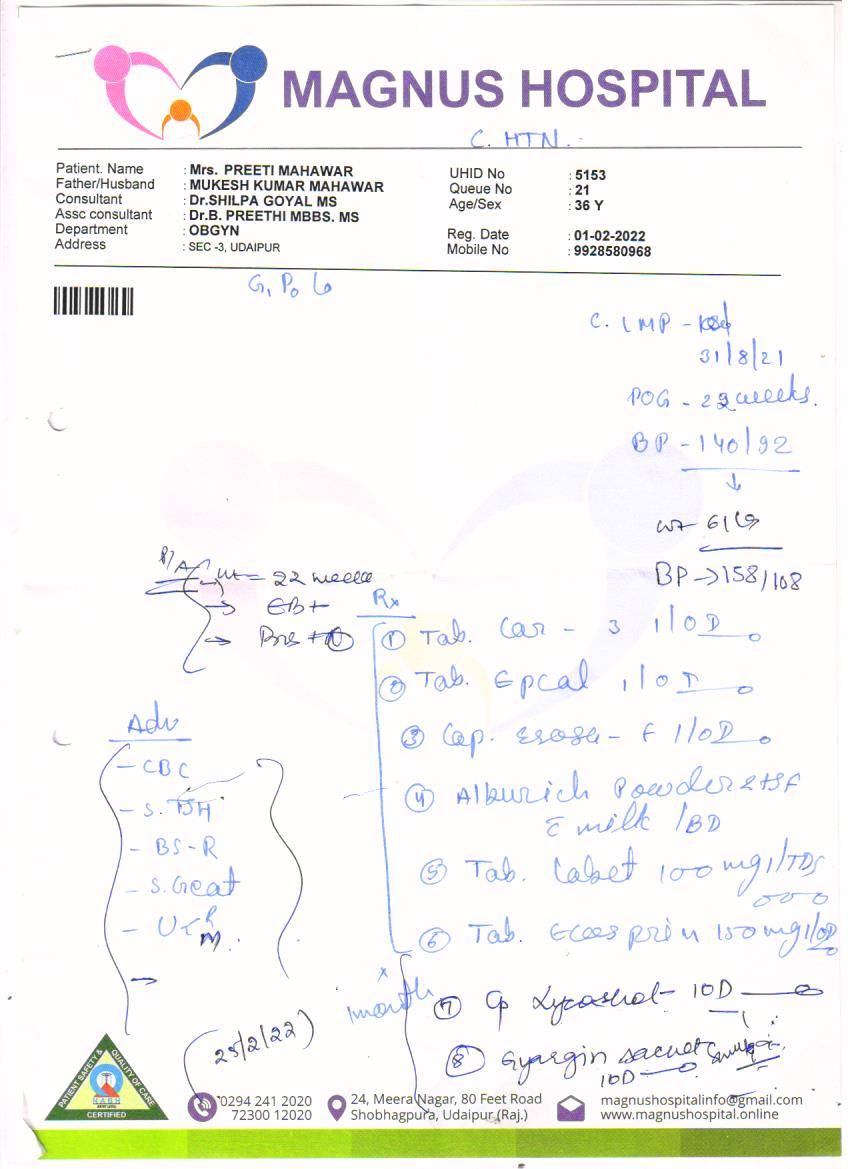 MAGNUS HOSPITAL
C. HTN.
Patient. Name : Mrs. PREETI MAHAWAR
Father/Husband : MUKESH KUMAR MAHAWAR
Consultant : Dr.SHILPA GOYAL MS
Assc consultant : Dr.B. PREETHI MBBS. MS
Department : OBGYN
Address : SEC -3, UDAIPUR
UHID No : 5153
Queue No : 21
Age/Sex : 36 Y
Reg. Date : 01-02-2022
Mobile No : 9928580968
G1 P0 L0
C. LMP -
31/8/21
POG - 22 weeks.
BP - 140/92
↓
wt 61 kg
BP → 158/108
P/A ut = 22 weeks
→ EB+
→
Rx
① Tab. Car - 3 1/OD
② Tab. Epcal 1/OD
③ Cap. - F 1/OD
④ Alburich Powder 2 tsf
c milk 1/BD
⑤ Tab. Labet 100 mg 1/TDS
⑥ Tab. Ecosprin 150 mg 1/OD
x
1 month
⑦ Cp 1OD
⑧ sachet
1OD
Adv
- CBC
- S. TSH
- BS-R
- S. Creat
- U R
M.
→
25/2/22
PATIENT SAFETY & QUALITY OF CARE
NABH
CERTIFIED
0294 241 2020
72300 12020
24, Meera Nagar, 80 Feet Road
Shobhagpura, Udaipur (Raj.)
magnushospitalinfo@gmail.com
www.magnushospital.online